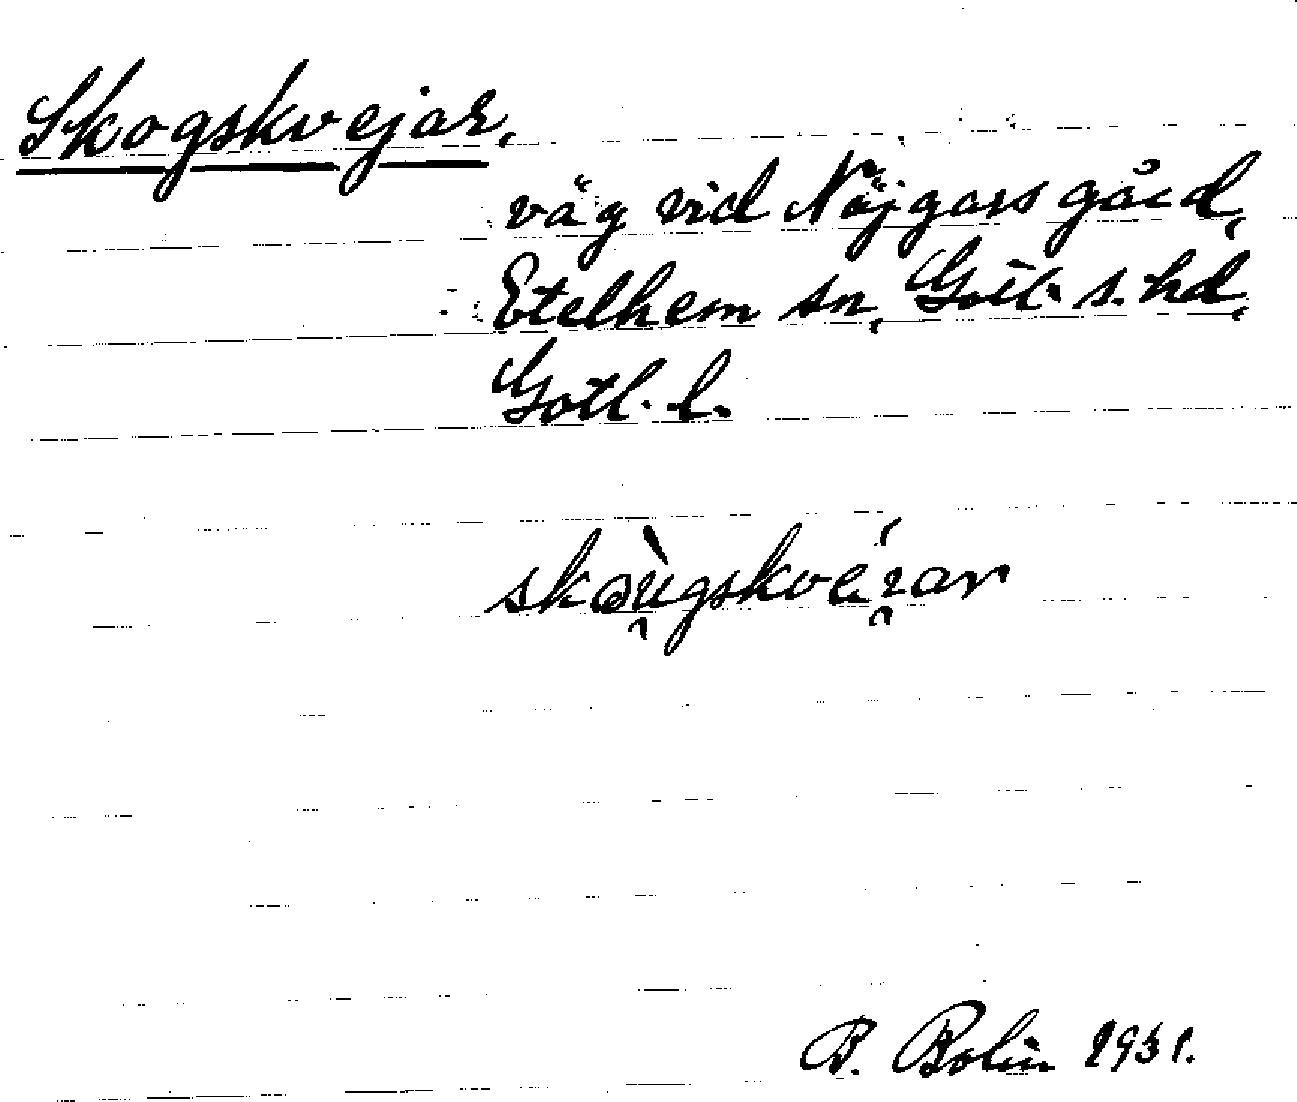 Skogskvejar,
väg vid Nöjgars gård,
Etelhem sn, Gotl. s. hd,
Gotl. l.
B. Bolin 1931.